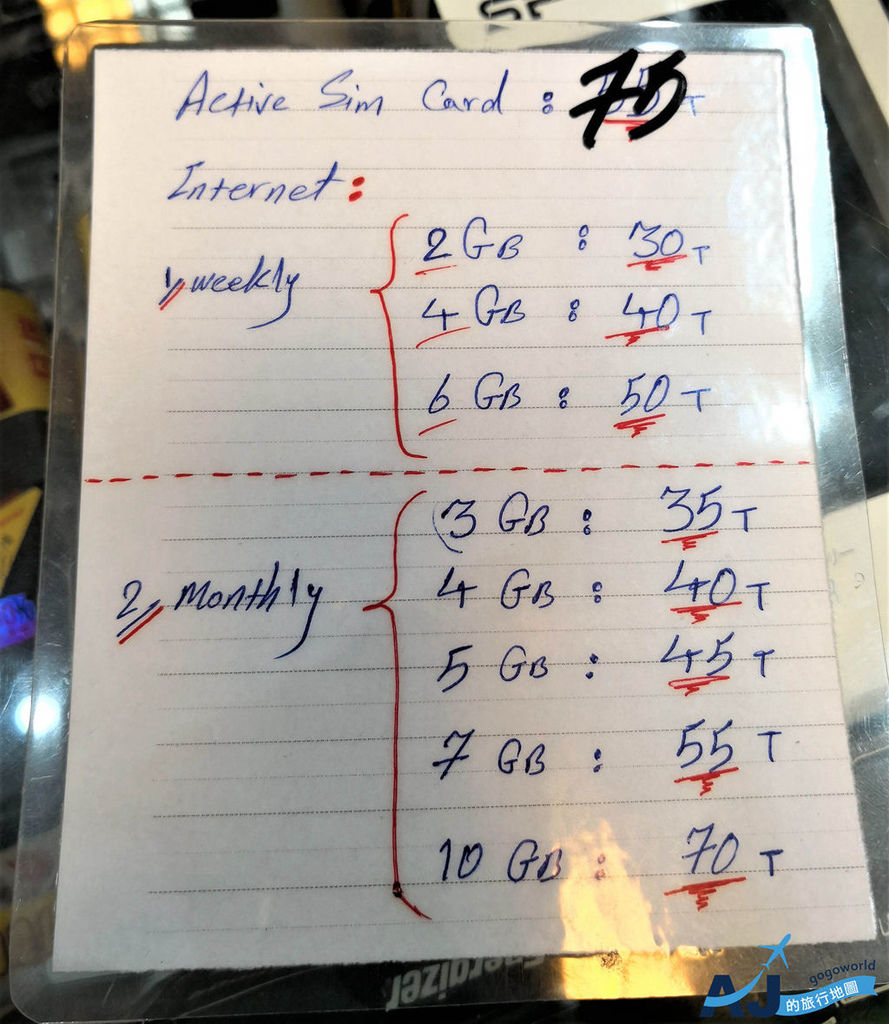 Active Sim Card : 75 T
Internet:
1, weekly
2 GB : 30 T
4 GB : 40 T
6 GB : 50 T
2, Monthly
3 GB : 35 T
4 GB : 40 T
5 GB : 45 T
7 GB : 55 T
10 GB : 70 T
Energizer
gogoworld
AJ的旅行地圖